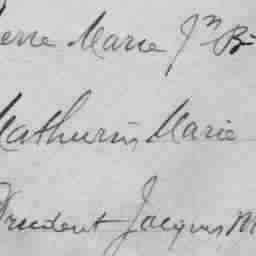 ierre Marie Jn B
Mathurin Marie
Prudent Jacques M